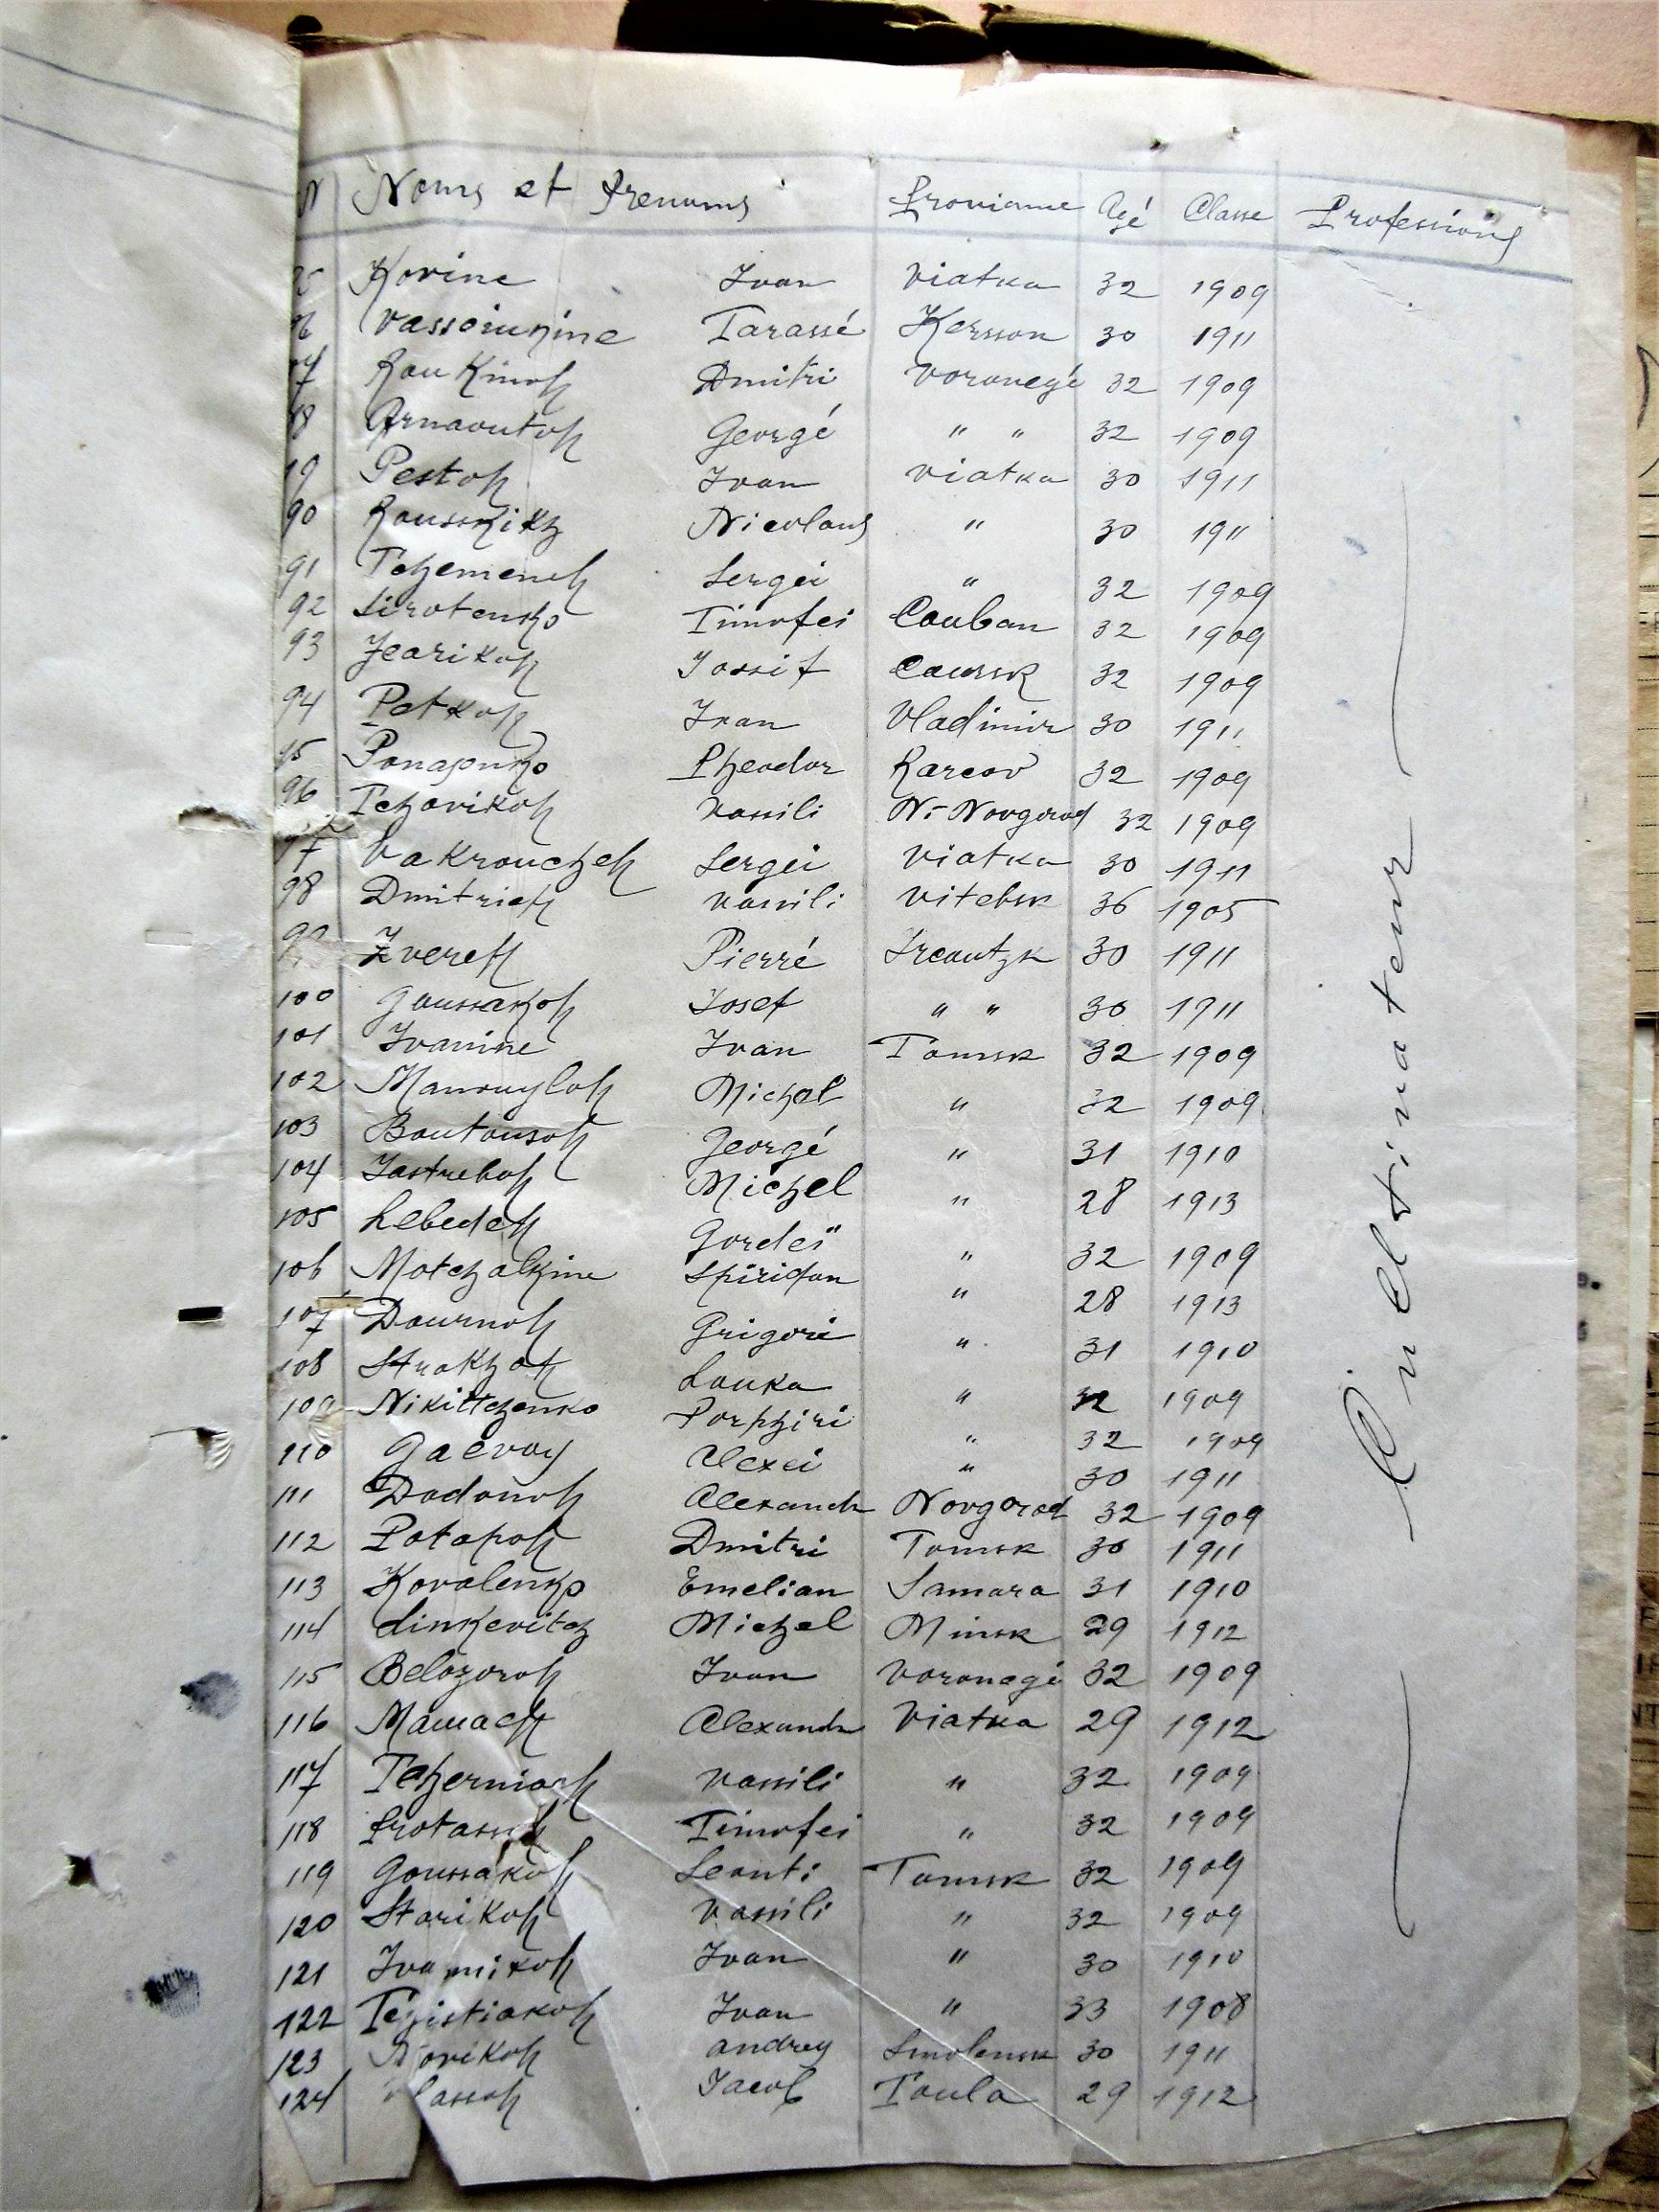 N Noms et prenoms Proviance Agé Classe Professions
85 Korine Ivan Viatka 32 1909
86 Vassiounine Tarassé Kersson 30 1911
87 Roukinoff Dmitri Voronegé 32 1909
88 Arnaoutoff Georgé " " 32 1909
89 Pestoff Ivan Viatka 30 1911
90 Rousskikz Nicolaus " 30 1911
91 Tchemeneff Sergei " 32 1909
92 Sirotenko Timofei Couban 32 1909
93 Jearikoff Iossif Coursk 32 1909
94 Petkoff Ivan Vladimir 30 1911
95 Ponajenko Pheodor Karcov 32 1909
96 Tchovikoff Vassili N.-Novgorod 32 1909
97 Vakroucheff Sergei Viatka 30 1911
98 Dmitrieff Vassili Vitebsk 36 1905
99 Zvereff Pierré Ircoutzk 30 1911
100 Goussakoff Iosef " " 30 1911
101 Ivanine Ivan Tomsk 32 1909
102 Manouyloff Michel " 32 1909
103 Boutousoff Georgé " 31 1910
104 Iastreboff Michel " 28 1913
105 Lebedeff Gordeï " 32 1909
106 Motchalkine Spiridon " 28 1913
107 Dournoff Grigori " 31 1910
108 Strakhoff Louka " 32 1909
109 Nikittchenko Porphiri " 32 1909
110 Gaevoy Alexei " 30 1911
111 Dodonoff Alexandr Novgorod 32 1909
112 Potapoff Dmitri Tomsk 30 1911
113 Kovalenko Emelian Samara 31 1910
114 Linkevitch Michel Minsk 29 1912
115 Belozoroff Ivan Voronegé 32 1909
116 Mamaeff Alexandr Viatka 29 1912
117 Tcherniaeff Vassili " 32 1909
118 Protassoff Timofei " 32 1909
119 Goussakoff Leonti Tomsk 32 1909
120 Starikoff Vassili " 32 1909
121 Ivannikoff Ivan " 30 1910
122 Tchistiakoff Ivan " 33 1908
123 Novikoff Andrey Smolensk 30 1911
124 Vlassoff Iacob Toula 29 1912
Cueltinateur